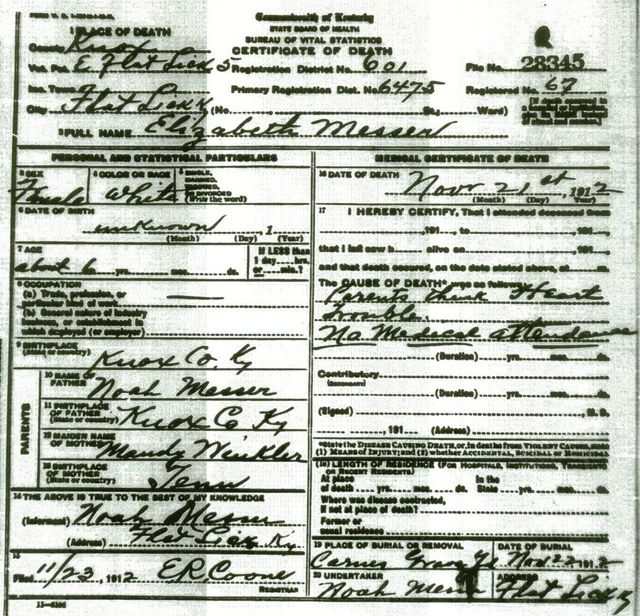 Commonwealth of Kentucky
STATE BOARD OF HEALTH
BUREAU OF VITAL STATISTICS
CERTIFICATE OF DEATH
1 PLACE OF DEATH
County Knox
Vot. Pct. E. Flat Lick 5 Registration District No. 601 File No. 28345
Inc. Town Primary Registration Dist. No. 6475 Registered No. 67
City Flat Lick (No. St.; Ward)
2 FULL NAME Elizabeth Messer
PERSONAL AND STATISTICAL PARTICULARS
3 SEX Female
4 COLOR OR RACE White
5 SINGLE, MARRIED, WIDOWED, OR DIVORCED (Write the word)
6 DATE OF BIRTH
unknown, 1
(Month) (Day) (Year)
7 AGE
about 6 yrs. mos. ds.
If LESS than 1 day, hrs. or min.?
8 OCCUPATION
(a) Trade, profession, or particular kind of work
(b) General nature of industry business, or establishment in which employed (or employer)
9 BIRTHPLACE
(State or country) Knox Co. Ky
PARENTS
10 NAME OF FATHER Noah Messer
11 BIRTHPLACE OF FATHER (State or country) Knox Co Ky
12 MAIDEN NAME OF MOTHER Mandy Winkler
13 BIRTHPLACE OF MOTHER (State or country) Tenn
14 THE ABOVE IS TRUE TO THE BEST OF MY KNOWLEDGE
(Informant) Noah Messer
(Address) Flat Lick Ky
15
Filed 11/23, 1912 E R
REGISTRAR
MEDICAL CERTIFICATE OF DEATH
16 DATE OF DEATH
Nov 21 st, 1912
(Month) (Day) (Year)
17 I HEREBY CERTIFY, That I attended deceased from
191, to 191,
that I last saw h alive on 191,
and that death occurred, on the date stated above, at m.
The CAUSE OF DEATH* was as follows:
Parents think Heart
trouble
No Medical attendance
(Duration) yrs. mos. ds.
Contributory
(SECONDARY)
(Duration) yrs. mos. ds.
(Signed) M.D.
191 (Address)
*State the DISEASE CAUSING DEATH, or, in deaths from VIOLENT CAUSES, state
(1) MEANS OF INJURY; and (2) whether ACCIDENTAL, SUICIDAL or HOMICIDAL
18 LENGTH OF RESIDENCE (FOR HOSPITALS, INSTITUTIONS, TRANSIENTS OR RECENT RESIDENTS)
At place of death yrs. mos. ds. In the State yrs. mos. ds.
Where was disease contracted, if not at place of death?
Former or usual residence
19 PLACE OF BURIAL OR REMOVAL DATE OF BURIAL
Nov 22 1912
20 UNDERTAKER ADDRESS
Noah Messer Flat Lick